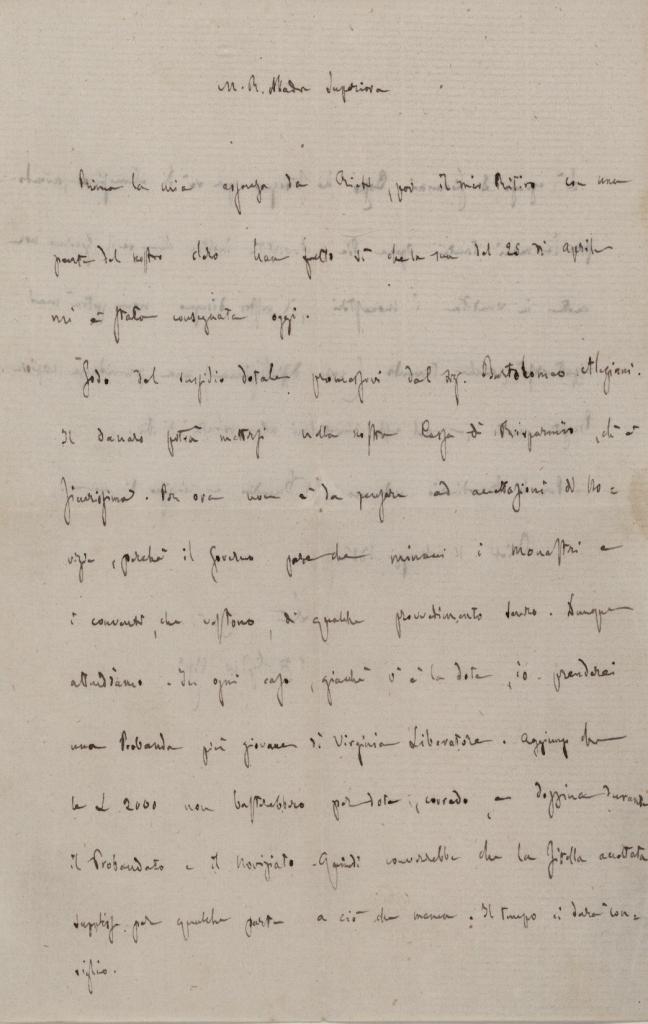 M. R. Madre Superiora
Prima la mia assenza da Rieti, poi il mio Ritiro con una
parte del nostro clero han fatto sì che la sua del 25 di Aprile
mi è stata consegnata oggi.
Godo del sussidio dotale promessovi dal Sig. Bartolomeo Alegiani.
Il danaro potrà mettersi nella nostra Cassa di Risparmio, ch'è
sicurissima. Per ora non è da pensare ad accettazioni di No=
vizie, perchè il Governo pare che minacci i Monasteri e
i conventi, che restono, di qualche provvedimento severo. Dunque
attendiamo. In ogni caso, giacchè v'è la dote, io prenderei
una Probanda più giovane di Virginia Liberatore. Aggiungo che
le L 2000 non basterebbero per dote, corredo, e dozzina durante
il Probandato e il Noviziato. Quindi converrebbe che la Zitella accettata
supplisse per qualche parte a ciò che manca. Il tempo ci darà con=
siglio.